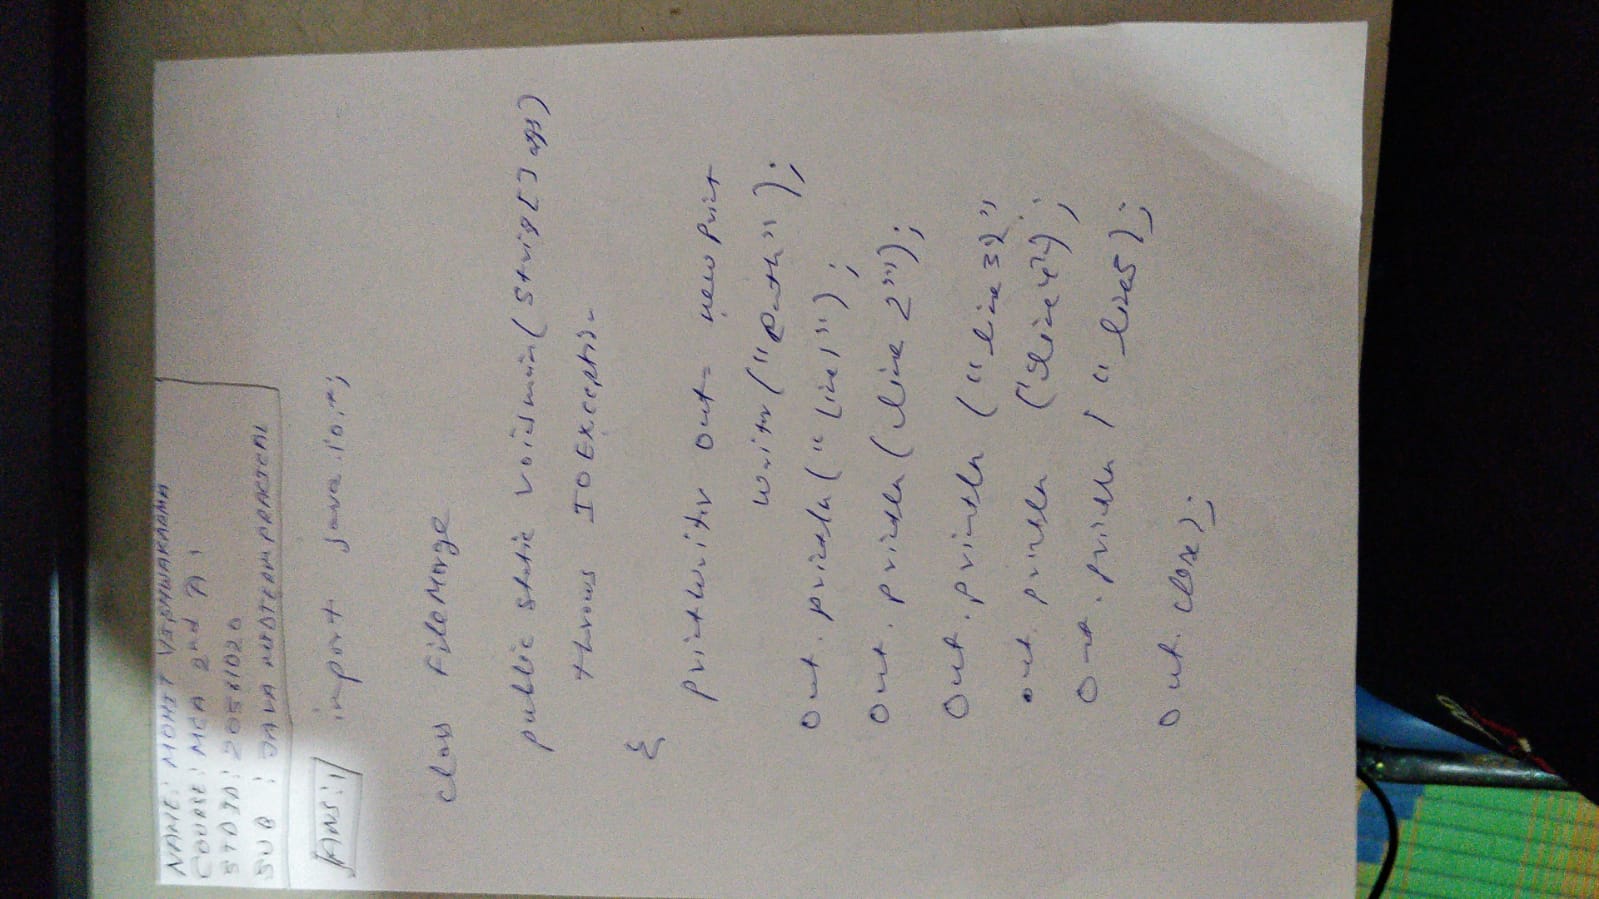 NAME: MOHIT VISHWAKARMA
COURSE: MCA 2nd A1
STDID: 20581020
SUB: JAVA MIDTERM PRACTICAL
ANS:1
import java.io.*;
class FileMerge
public static void main(String[] args)
throws IOException
{
PrintWriter out = new Print
Writer("Path");
out.println("Line1");
out.println(line 2");
out.println("line 3)"
out.println("line4");
out.println("line5);
out.close);